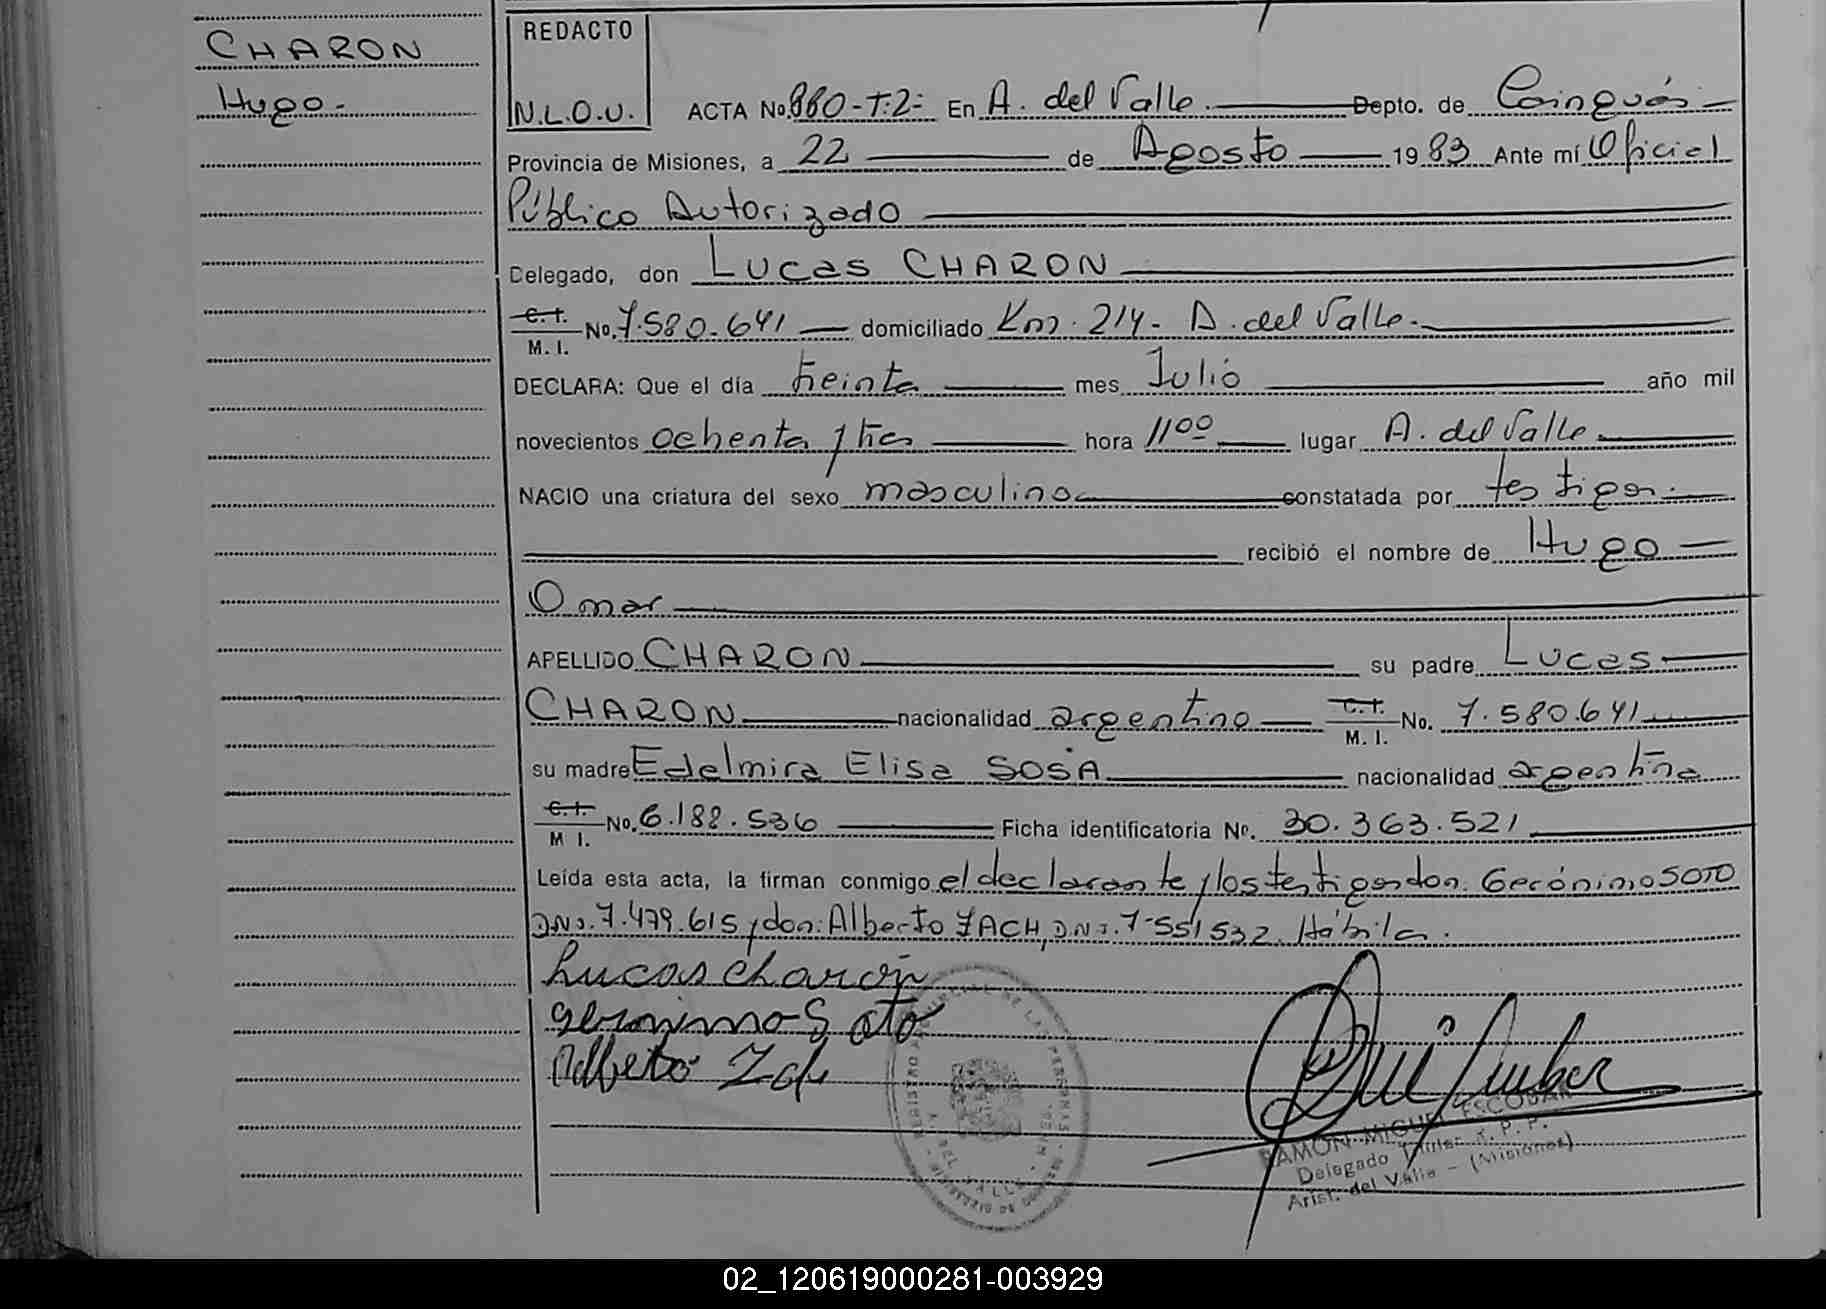 CHARON
Hugo.-
REDACTO
N.L.O.U.
ACTA No. 880-T:2- En A. del Valle. Depto. de Cainguás
Provincia de Misiones, a 22 de Agosto 1983 Ante mí Oficial
Público Autorizado
Delegado, don Lucas CHARON
C.I. M. I. No. 7.580.641 domiciliado Km. 214- A. del Valle.
DECLARA: Que el día treinta mes Julio año mil
novecientos ochenta y tres hora 11°° lugar A. del Valle
NACIO una criatura del sexo masculino constatada por testigos.
recibió el nombre de Hugo
Omar
APELLIDO CHARON su padre Lucas
CHARON nacionalidad argentino C.I. M. I. No. 7.580.641
su madre Edelmira Elisa SOSA nacionalidad argentina
C.I. M I. No. 6.188.536 Ficha identificatoria Nº. 30.363.521
Leída esta acta, la firman conmigo el declarante y los testigos don: Gerónimo SOTO
DNI. 7.479.615 y don: Alberto ZACH, DNI. 7.551532. Hábiles.
Lucas Charon
geronimo Soto
Alberto
RAMON MIGUEL ESCOBAR
Delegado Titular R. P. P.
Arist. del Valle - (Misiones)
02_120619000281-003929